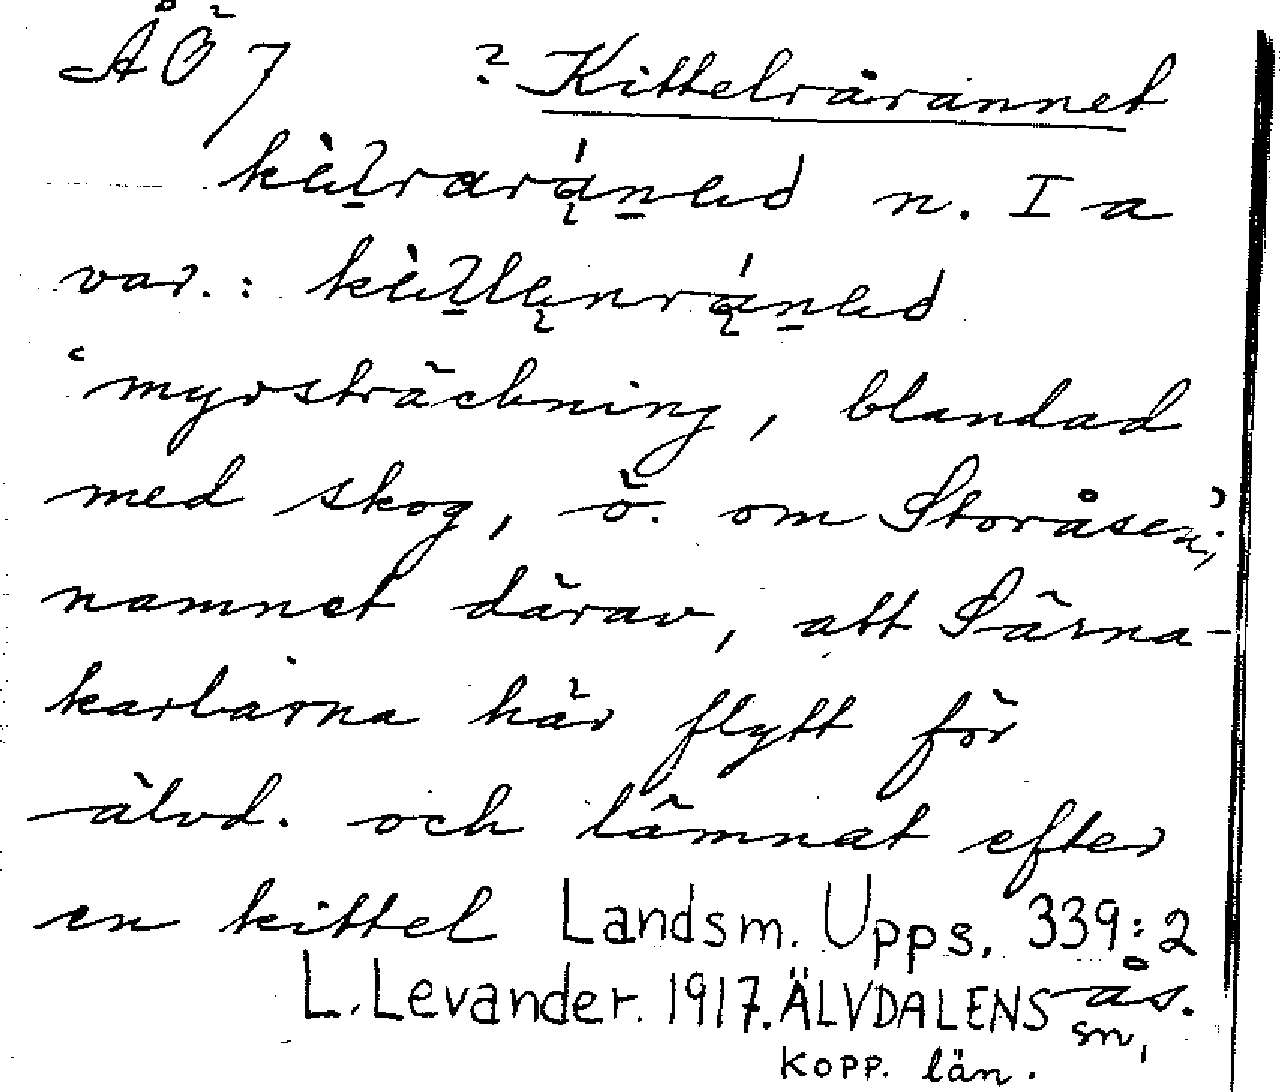 ÅÖ 7 ? Kittelrärännet
n. I a
var.:
'myrsträckning, blandad
med skog, ö. om Storåsen';
namnet därav, att Särna-
karlarna här flytt för
älvd. och lämnat efter
en kittel Landsm. Upps. 339:2
L. Levander. 1917. ÄLVDALENS ås.
sn,
KOPP. län.